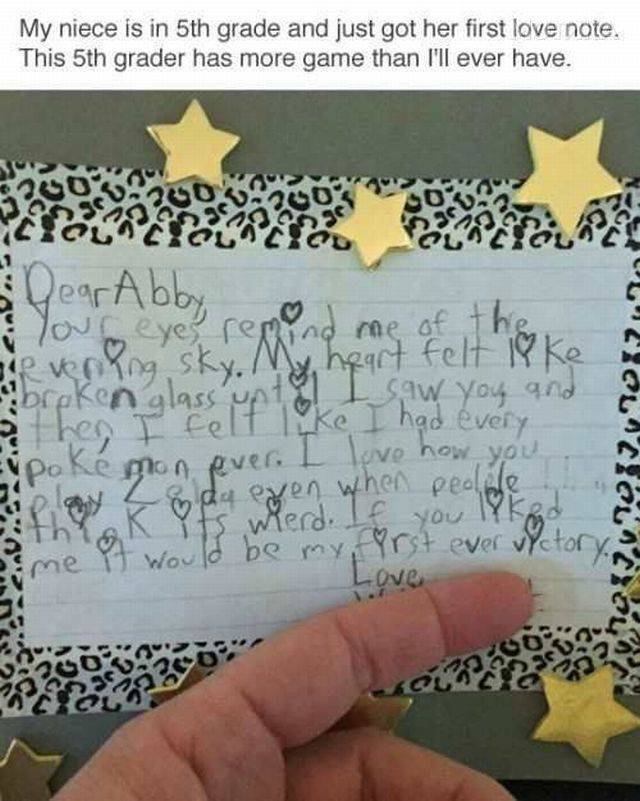 My niece is in 5th grade and just got her first love note.
This 5th grader has more game than I'll ever have.
Dear Abby,
Your eyes remind me of the
evening sky. My heart felt like
broken glass until I saw you and
then I felt like I had every
poké mon ever. I love how you
play Zelda even when people
think its wierd. If you liked
me it would be my first ever victory.
Love,